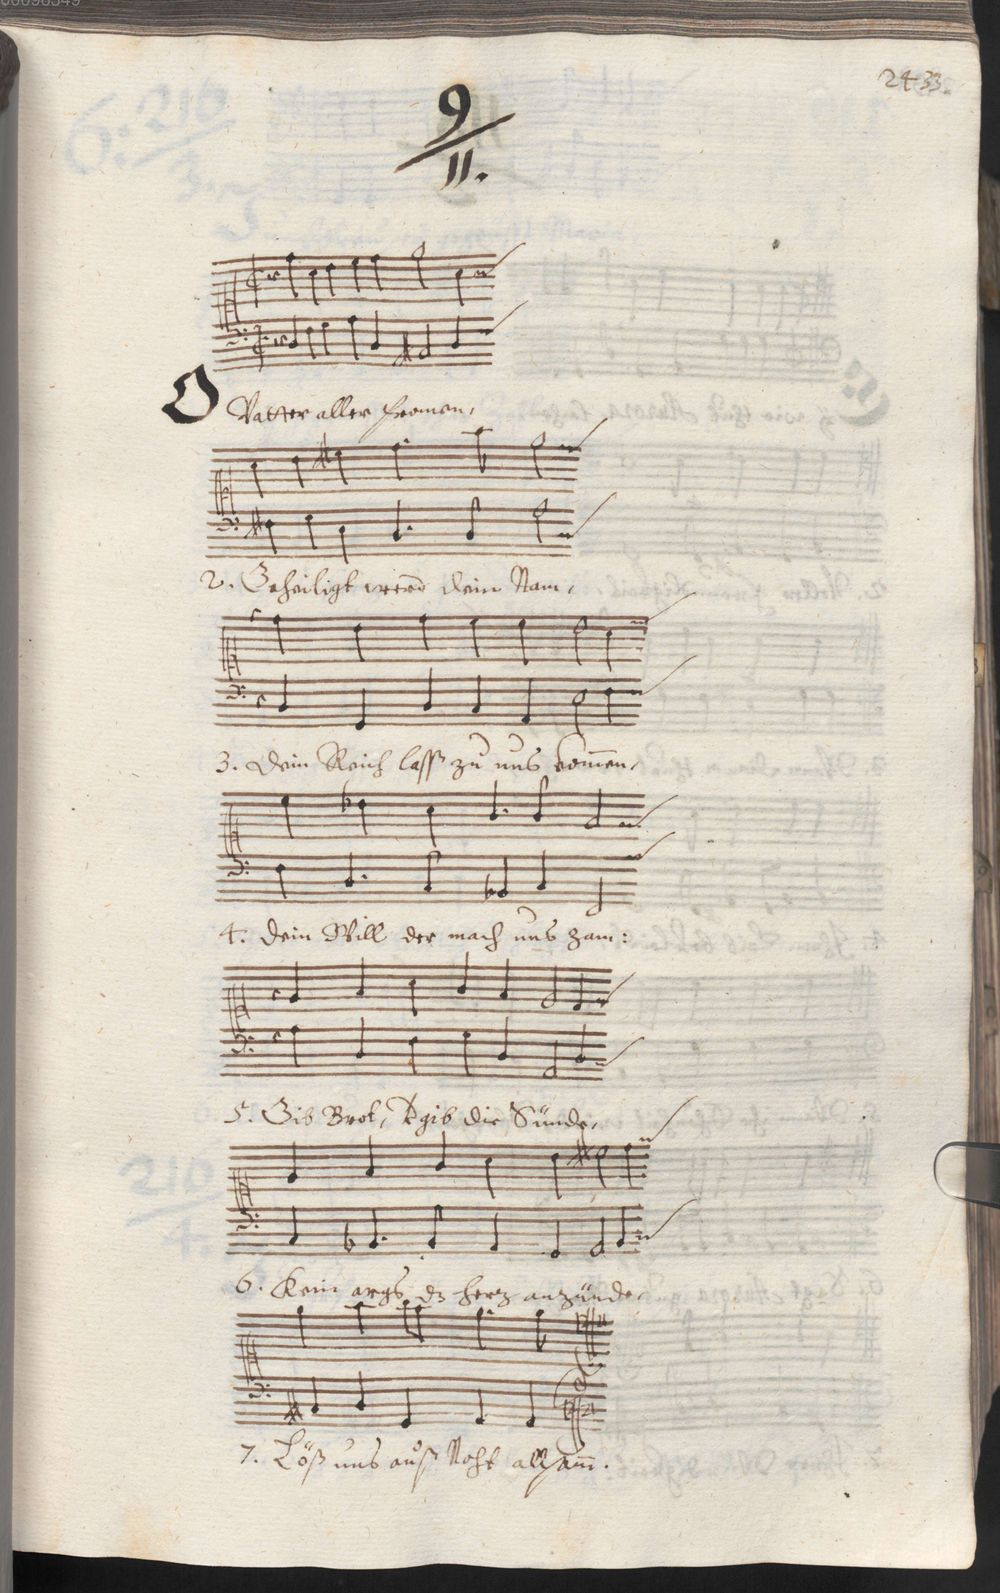 2433.
9
11.
O Vatter aller fromen,
2. Geheiligt werd dein Nam,
3. Dein Reich lass zu uns komen,
4. Dein Will der mach uns zam:
5. Gib Brot, Vgib die Sünde,
6. Kein args dz herz anzünde,
7. Löß uns auß Noht allsam̄.